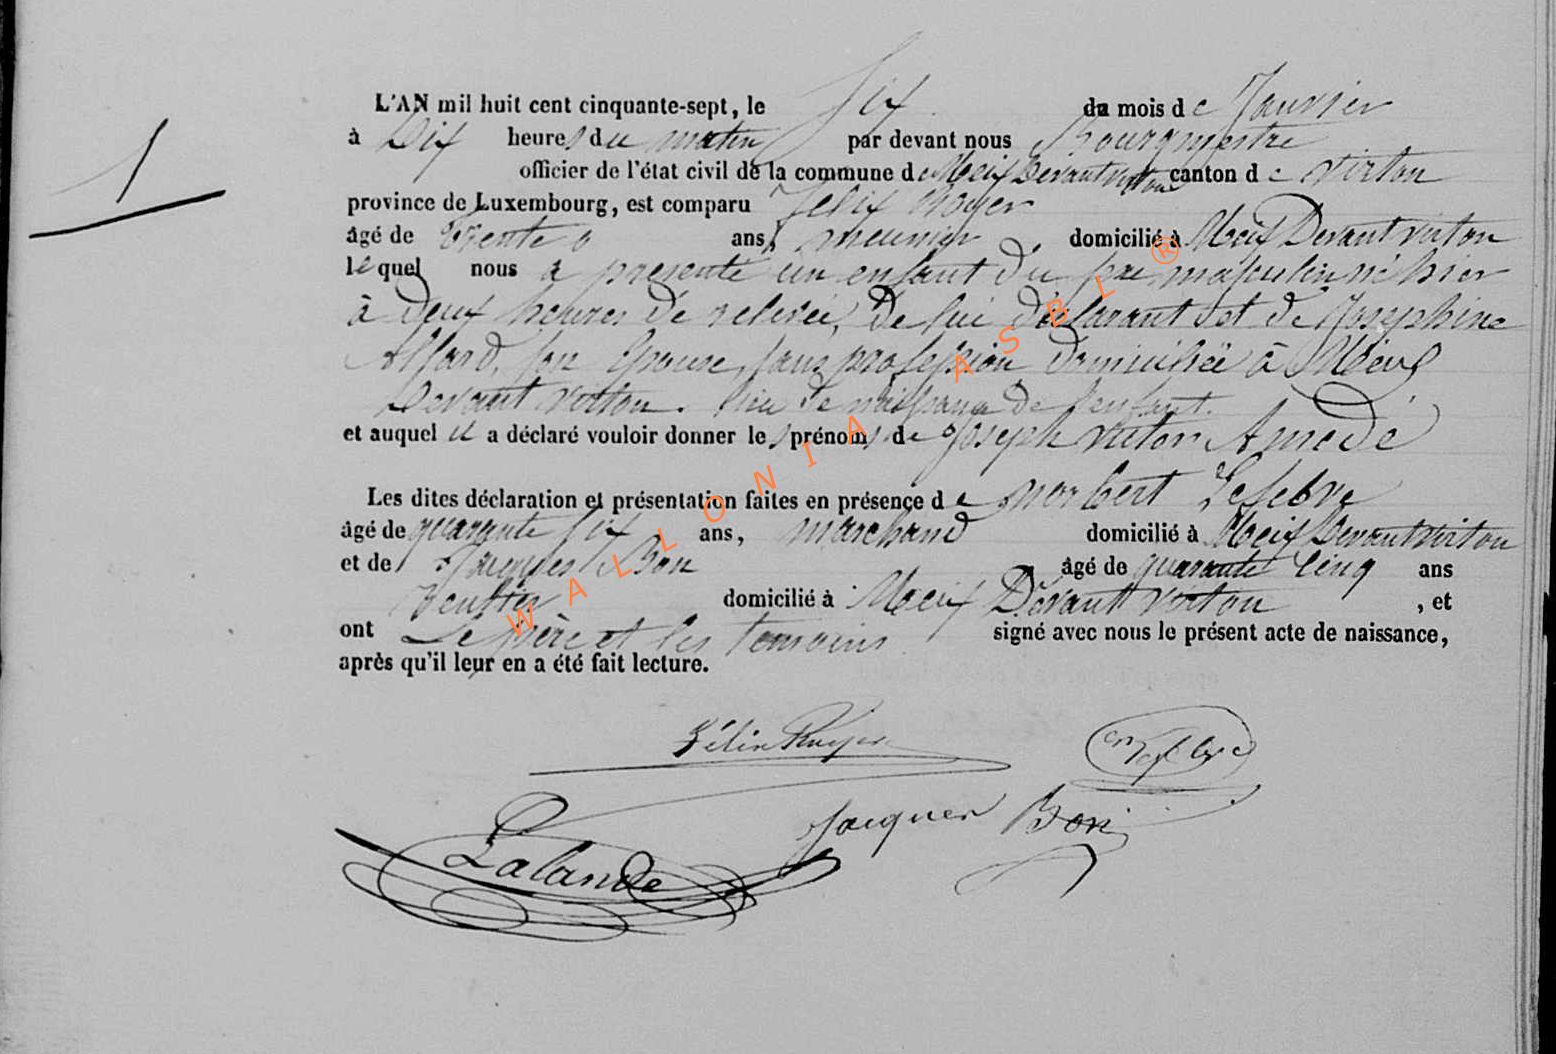 1
L'AN mil huit cent cinquante-sept, le Six du mois de Janvier
à Dix heures du matin par devant nous Bourgmestre
officier de l'état civil de la commune de Meix Devant virton canton de virton
province de Luxembourg, est comparu Felix Royer
âgé de Trente ans, meunier, domicilié à Meix Devant virton
lequel nous a présenté un enfant du sexe masculin né hier
à deux heures de relevée, de lui déclarant et de Josephine
Allard, son épouse, sans profession domiciliée à Meix
Devant virton. lieu de naissance de l'enfant.
et auquel il a déclaré vouloir donner les prénoms de Joseph Amedé
Les dites déclaration et présentation faites en présence de Norbert Lefebvre
âgé de quarante six ans, marchand domicilié à Meix Devant virton
et de Jacques Bon âgé de quarante cinq ans
domicilié à Meix Devant virton, et
ont Le père et les temoins signé avec nous le présent acte de naissance,
après qu'il leur en a été fait lecture.
Félix Royer
Jacques Bon
Lalande
WALLONIA ASBL ®